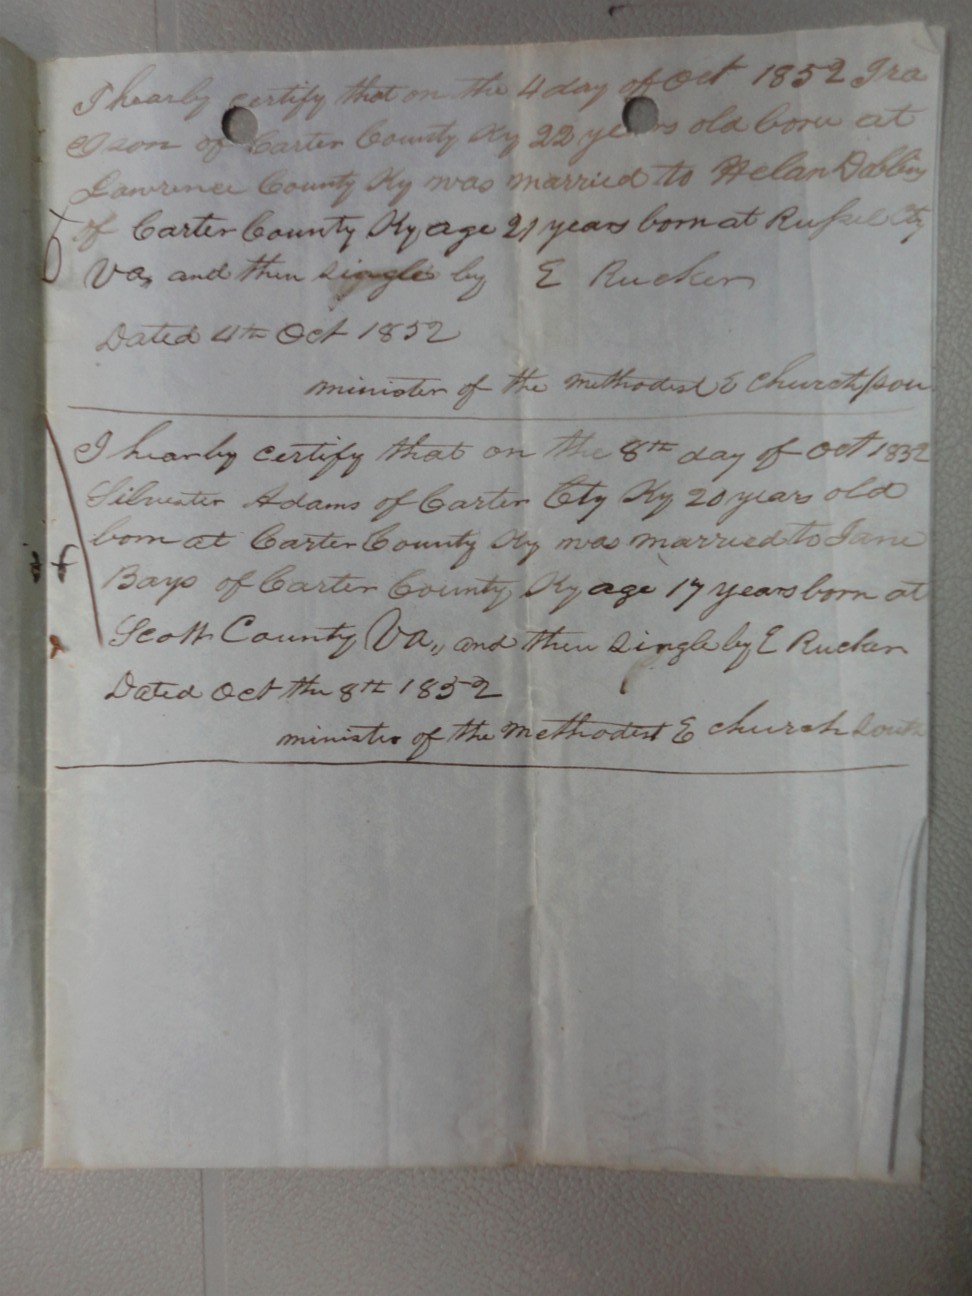 I hearby certify that on the 4 day of Oct 1852 Ira
Ison of Carter County Ky 22 years old born at
Lawrence County Ky was married to Helan Dobbins
of Carter County Ky age 21 years born at Russel Cty
Va, and then single by E Rucker
Dated 4th Oct 1852
minister of the Methodest E Church
I hearby certify that on the 8th day of Oct 1852
Silvester Adams of Carter Cty Ky 20 years old
born at Carter County Ky was married to Jane
Bays of Carter County Ky age 17 years born at
Scott County Va,, and then single by E Rucker
Dated Oct the 8th 1852
minister of the Methodest E church South